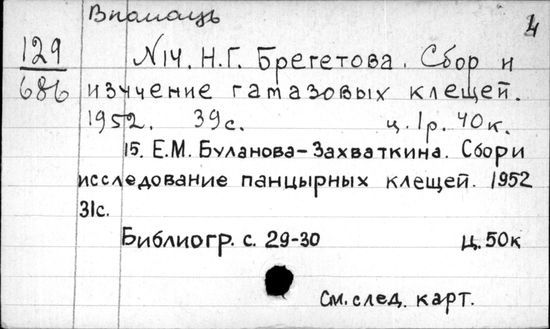 В помощь
4
129
686
№14. Н.Г. Брегетова. Сбор и
изучение гамазовых клещей.
1952. 39с. ц. 1р. 40к.
15. Е.М. Буланова-Захваткина. Сбор и
исследование панцырных клещей. 1952
31с.
Библиогр. с. 29-30 Ц. 50к
См. след. карт.